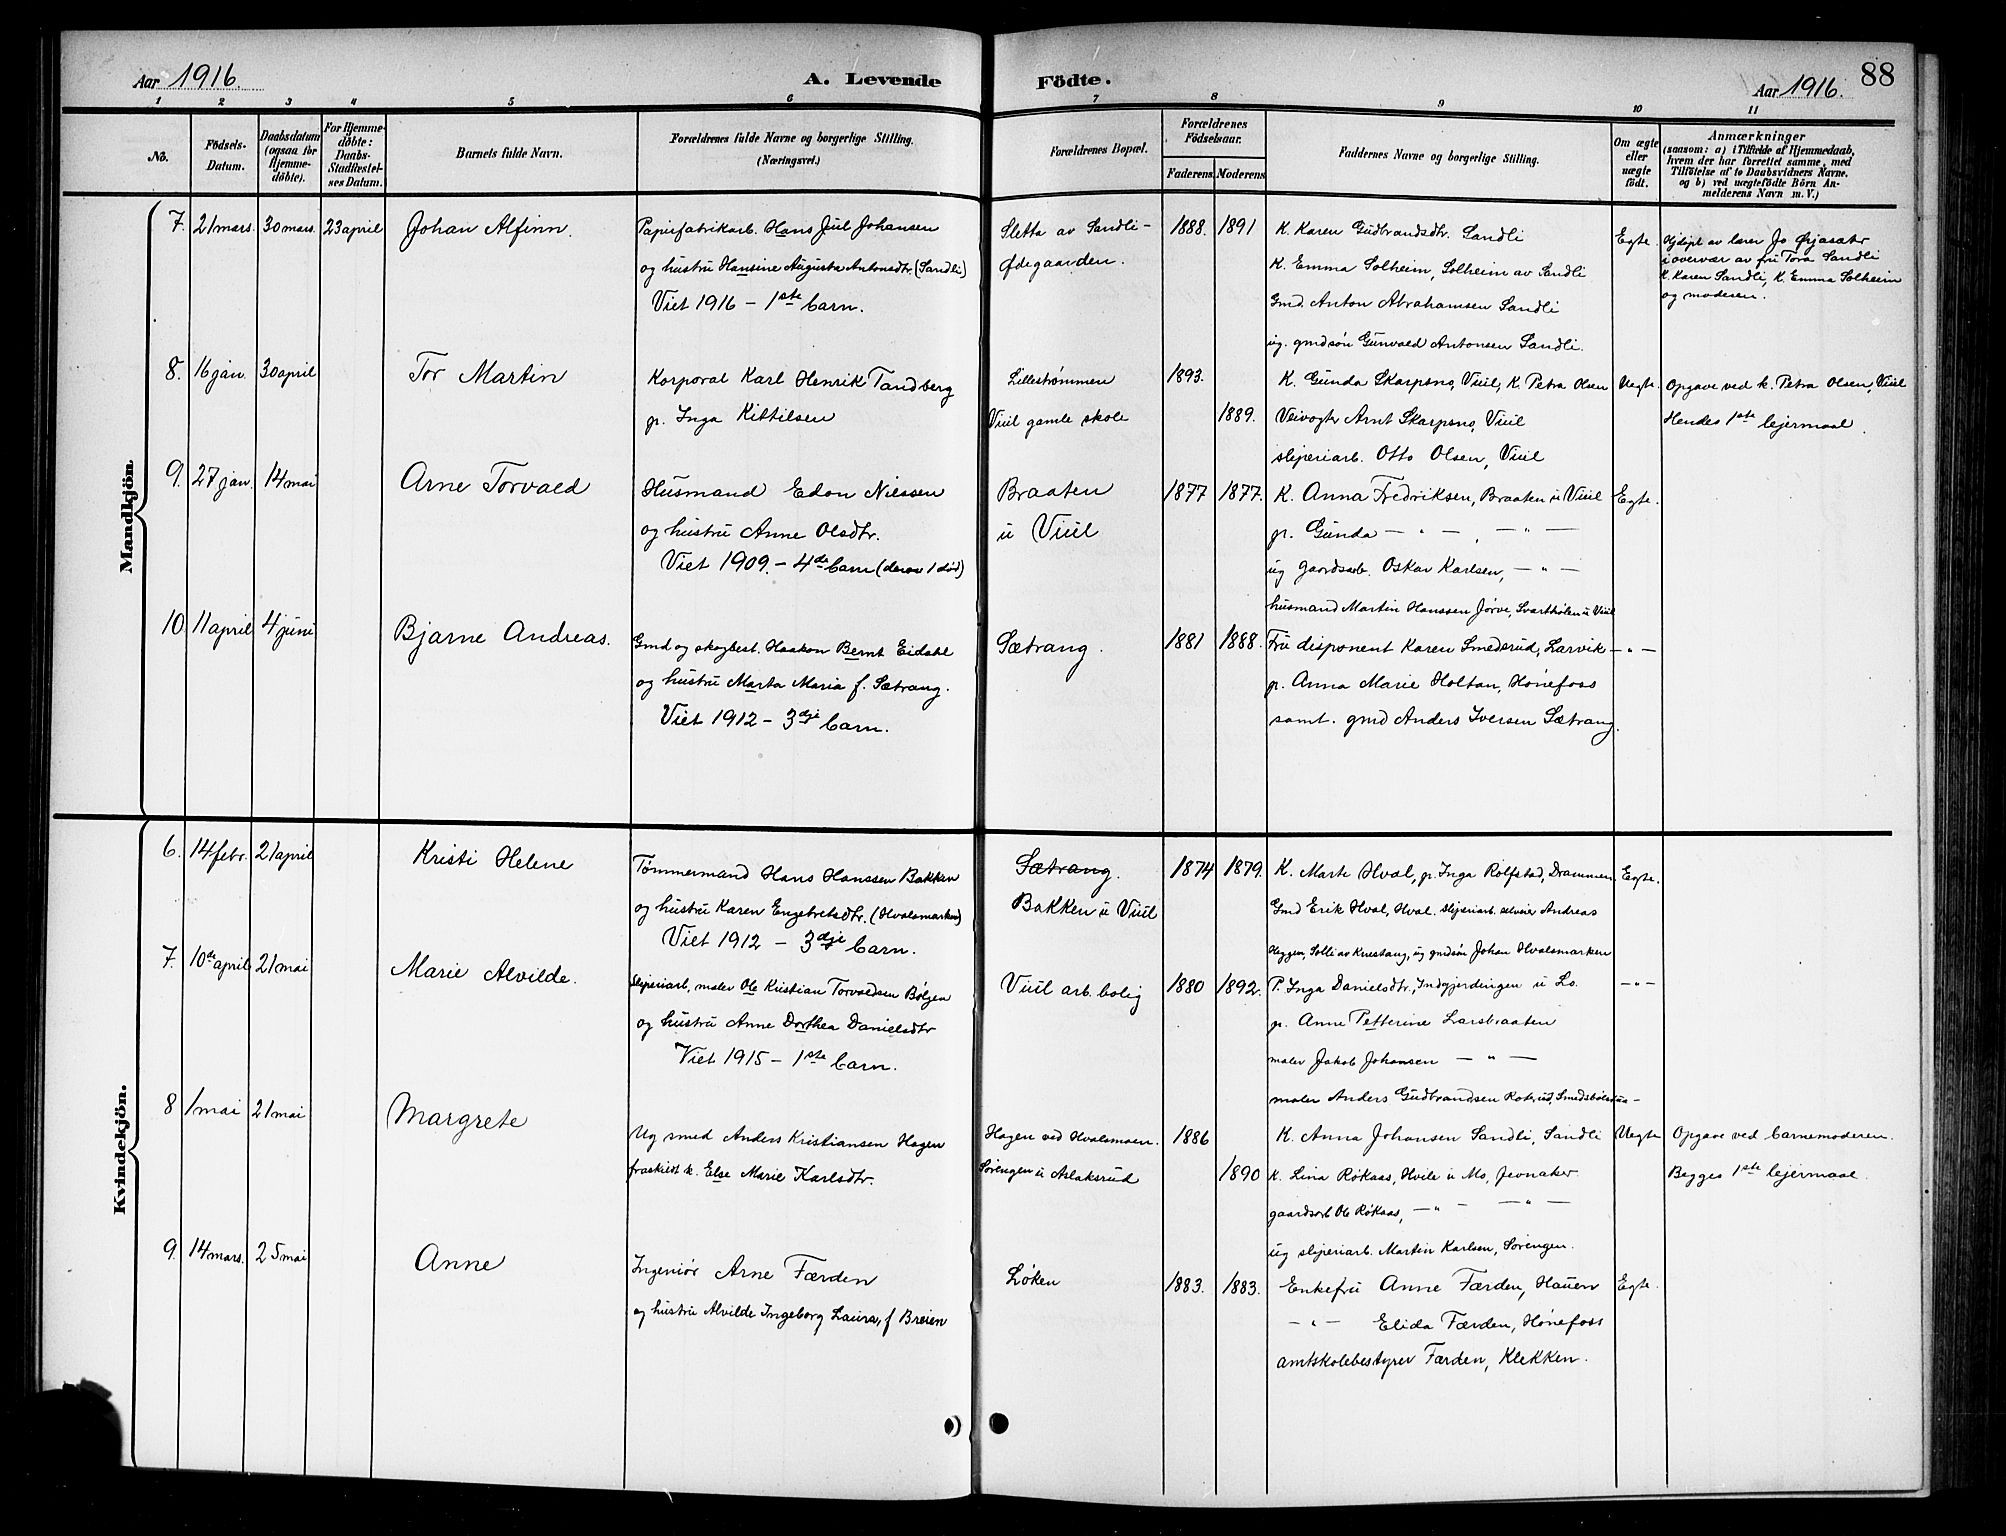 Aar 1916. A. Levende Födte. Aar 1916. 88
1 2 3 4 5 6 7 8 9 10 11
No. Födsels-Datum. Daabsdatum (ogsaa for Hjemmedöbte). For Hjemmedöbte: Daabs-Stadfæstelses Datum. Barnets fulde Navn. Forældrenes fulde Navne og borgerlige Stilling. (Næringsvei.) Forældrenes Bopæl. Forældrenes Födselsaar. Faderens Moderens Faddernes Navne og borgerlige Stilling. Om ægte eller uægte födt. Anmærkninger (saasom: a) i Tilfælde af Hjemmedaab, hvem der har forrettet samme, med Tilföielse af to Daabsvidners Navne. og b) ved uægtefödte Börn Anmelderens Navn m. V.)
Mandkjön.
7. 21 mars. 30 mars. 23 april Johan Alfinn. Papirfabrikarb. Hans Juul Johansen Sletta av Sandli- 1888. 1891 K. Karen Gudbrandsdtr. Sandli Egte. Hjdøpt av lærer Jo Ørjasæter
og hustru Hansine Augusta Antonsdtr. (Sandli) Ødegaarden. K. Emma Solheim, Solheim av Sandli i overvær av fru Tora Sandli
Viet 1916 – 1ste barn. Gmd. Anton Abrahamsen Sandli K. Karen Sandli, K. Emma Solheim
ug. gmdsøn Gunvald Antonsen Sandli. og moderen.
8. 16 jan. 30 april Tor Martin Korporal Karl Henrik Tandberg Lillestrømmen 1893. K. Gunda Skarpsno, Viul, K. Petra Olsen Uegte. Opgave ved k. Petra Olsen, Viul
p. Inga Kittilsen Viul gamle skole 1889. Veivogter Arnt Skarpsno, Viul Hendes 1ste lejermaal.
sliperiarb. Otto Olsen, Viul
9. 27 jan. 14 mai Arne Torvald Husmand Edon Nielsen Braaten 1877 1877. K. Anna Fredriksen, Braaten u Viul Egte.
og hustru Anne Olsdtr. u Viul p. Gunda — " — , — " —
Viet 1909. – 4de barn (derav 1 død) ug gaardsarb. Oskar Karlsen, — " —
husmand Martin Hanssen Jørve, Svarthølen u Viul
10. 11 april 4 juni Bjarne Andreas. Gmd og skogbest. Haakon Bernt Eidahl Sætrang. 1881 1888. Fru disponent Karen Smedsrud, Larvik — " —
og hustru Marta Maria f. Sætrang. p. Anna Marie Holtan, Hønefoss
Viet 1912 – 3dje barn. samt. gmd Anders Iversen Sætrang.
Kvindekjön.
6. 14 febr. 21 april Kristi Helene Tømmermand Hans Hanssen Bakken Sætrang. 1874 1879. K. Marte Hval, p. Inga Rolfstad, Drammen. Egte.
og hustru Karen Engebretsdtr. (Hvalsmarken) Bakken u Viul Gmd Erik Hval, Hval. sliperiarb. selveier Andreas
Viet 1912 – 3dje barn. Heggen, Solli av Knestang, ug gmdsøn Johan Hvalsmarken
7. 10de april 21 mai Marie Alvilde. Sliperiarb, maler Ole Kristian Torvaldsen Bølgen Viul arb. bolig 1880 1892. P. Inga Danielsdtr., Indgjerdingen u Lo. — " —
og hustru Anne Dorthea Danielsdtr p. Anne Petterine Larsbraaten
Viet 1915 – 1ste barn. maler Jakob Johansen — " —
maler Anders Gudbrandsen Roterud,
8 1 mai 21 mai Margrete Ug smed Anders Kristiansen Hagen Hagen ved Hvalsmoen. 1886 K. Anna Johansen Sandli, Sandli Uegte Opgave ved barnemoderen.
fraskilt k. Else Marie Karlsdtr. Sørengen u Aslaksrud 1890 K. Lina Røkaas, Hvile u Mo, Jevnaker Begges 1ste lejermaal.
gaardsarb Ole Røkaas, — " — — " —
ug sliperiarb. Martin Karlsen, Sørengen.
9. 14 mars. 25 mai Anne Ingeniør Arne Færden Løken 1883. 1883. Enkefru Anne Færden, Hauen Egte.
og hustru Alvilde Ingeborg Laura, f Breien — " — Elida Færden, Hønefoss
amtskolebestyrer Færden, Klekken.